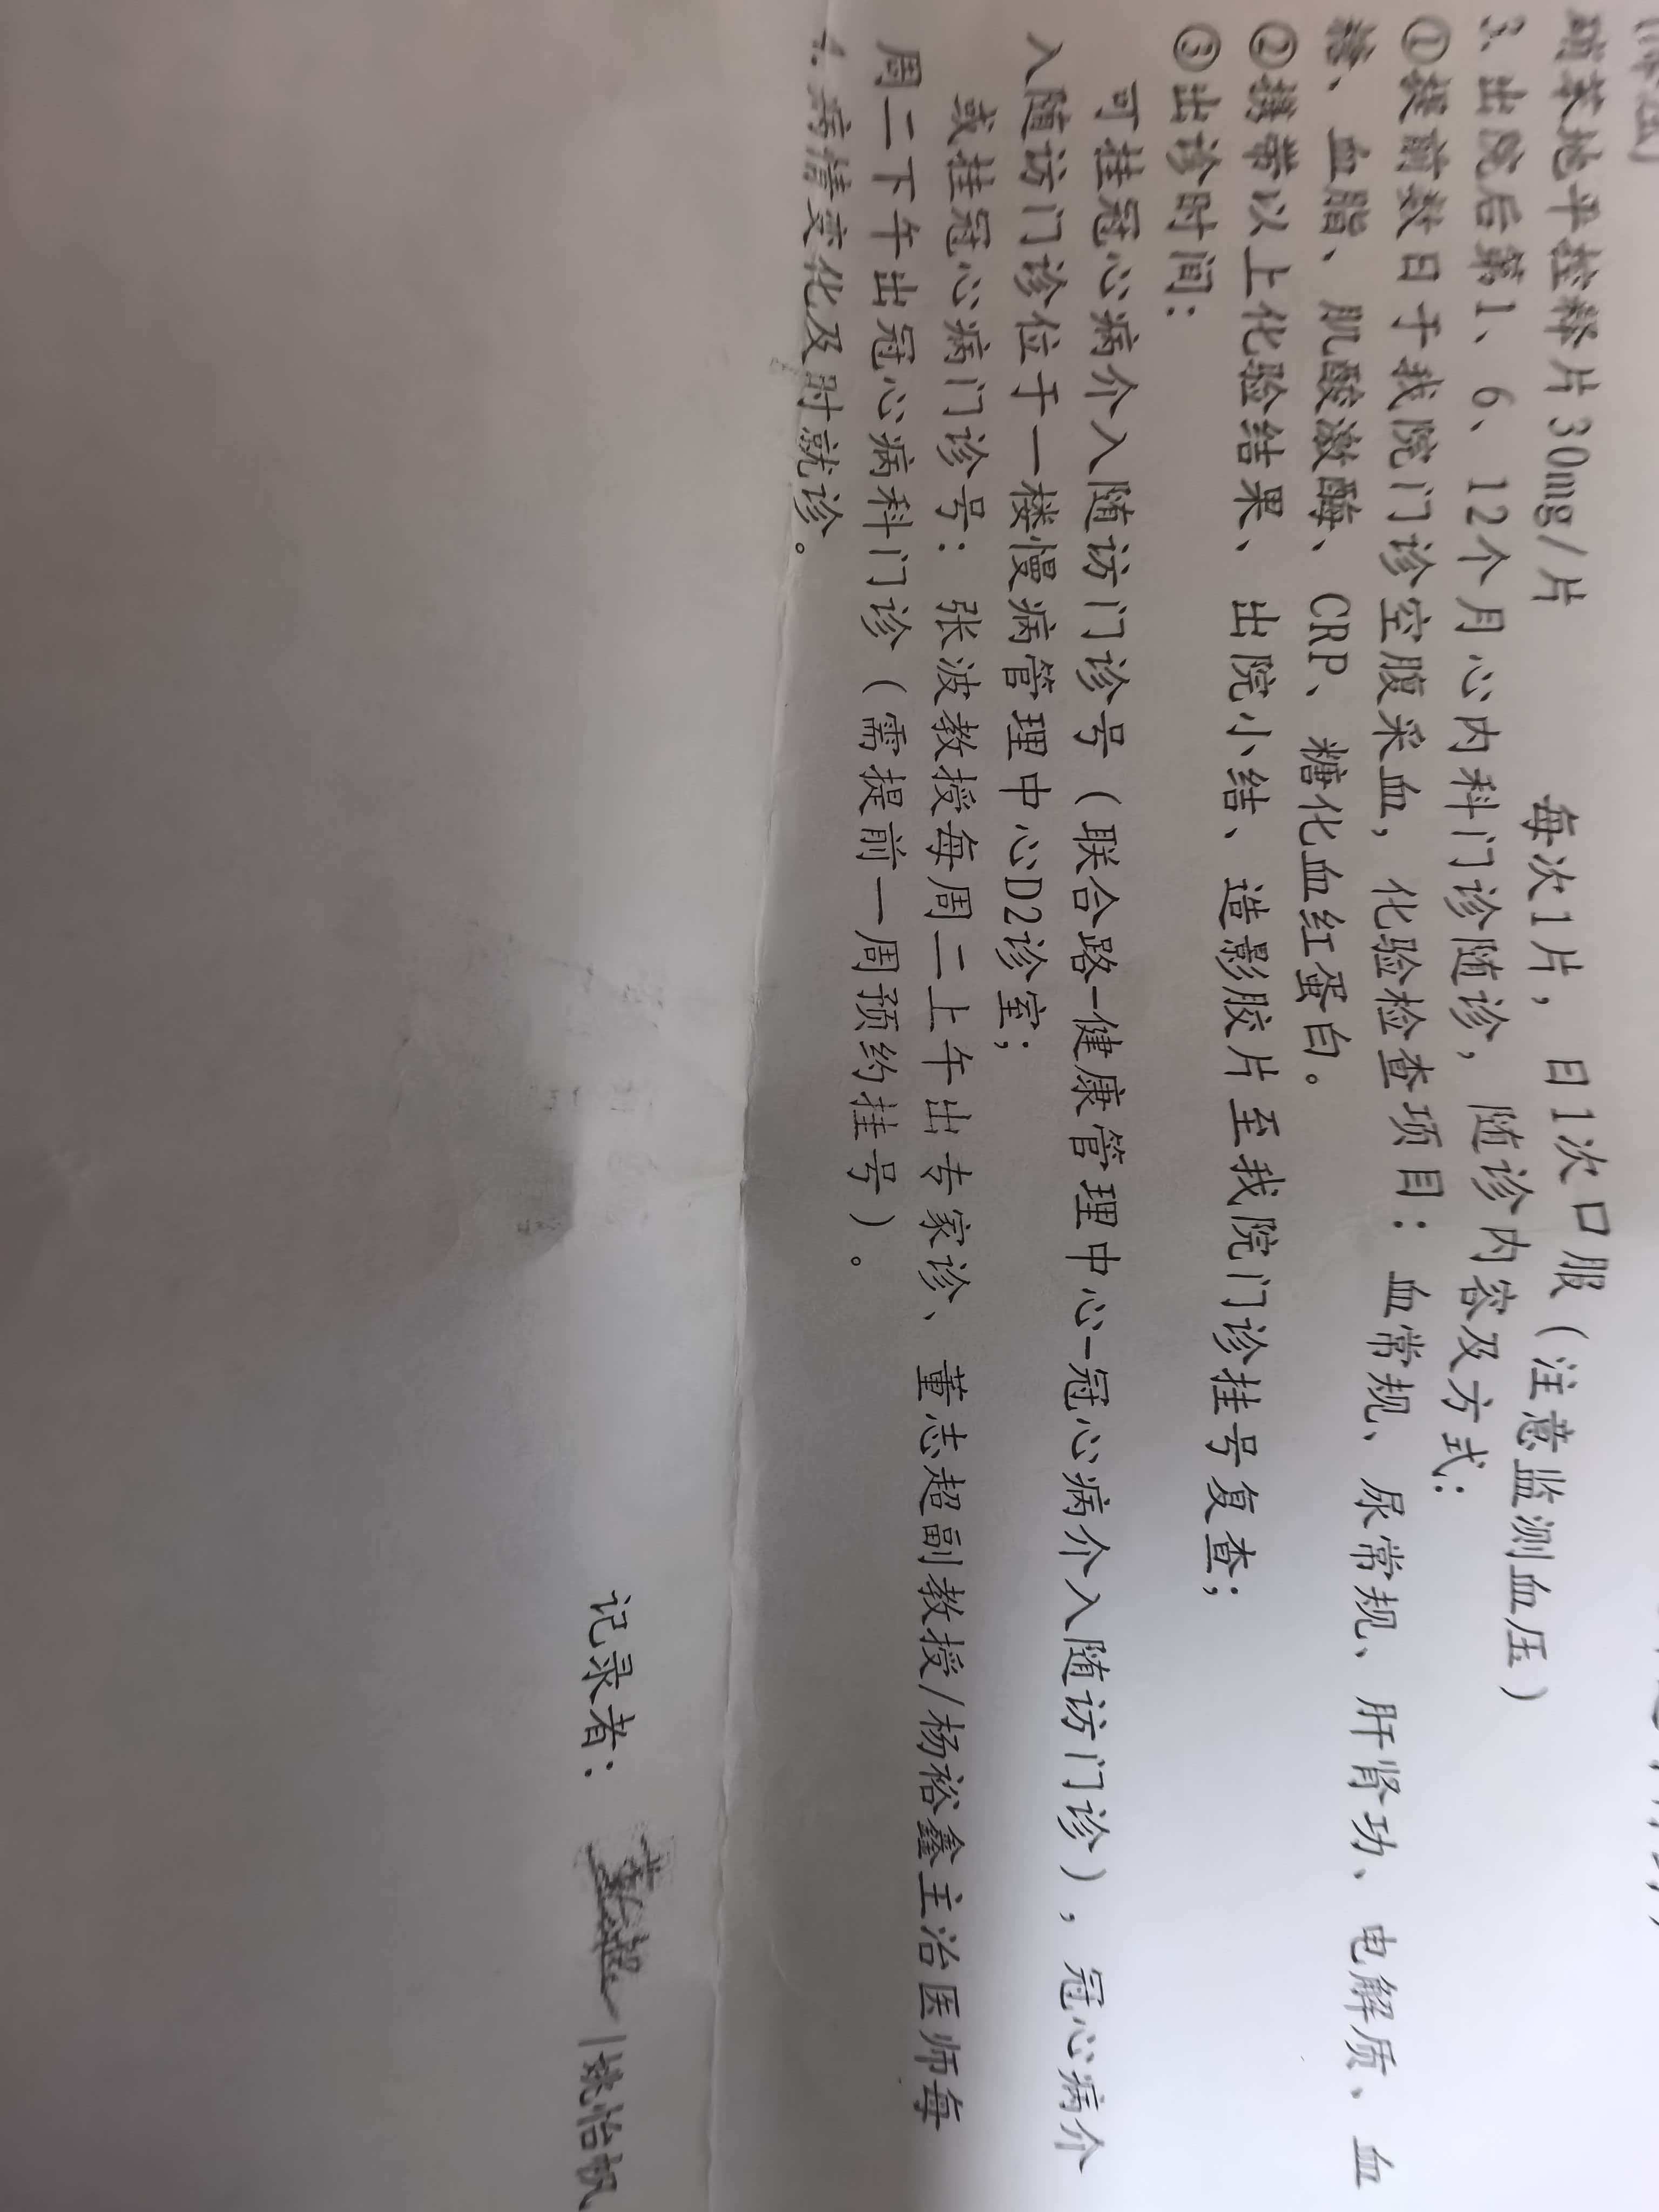 硝苯地平控释片30mg/片 每次1片， 日1次口服（注意监测血压）
3. 出院后第1、6、12个月心内科门诊随诊，随诊内容及方式：
①提前数日于我院门诊空腹采血，化验检查项目：血常规、尿常规、肝肾功、电解质、血
糖、血脂、肌酸激酶、CRP、糖化血红蛋白。
②携带以上化验结果、出院小结、造影胶片至我院门诊挂号复查；
③出诊时间：
可挂冠心病介入随访门诊号（联合路-健康管理中心-冠心病介入随访门诊），冠心病介
入随访门诊位于一楼慢病管理中心D2诊室；
或挂冠心病门诊号：张波教授每周二上午出专家诊、董志超副教授/杨裕鑫主治医师每
周二下午出冠心病科门诊（需提前一周预约挂号）。
4. 病情变化及时就诊。
记录者： 姚怡帆